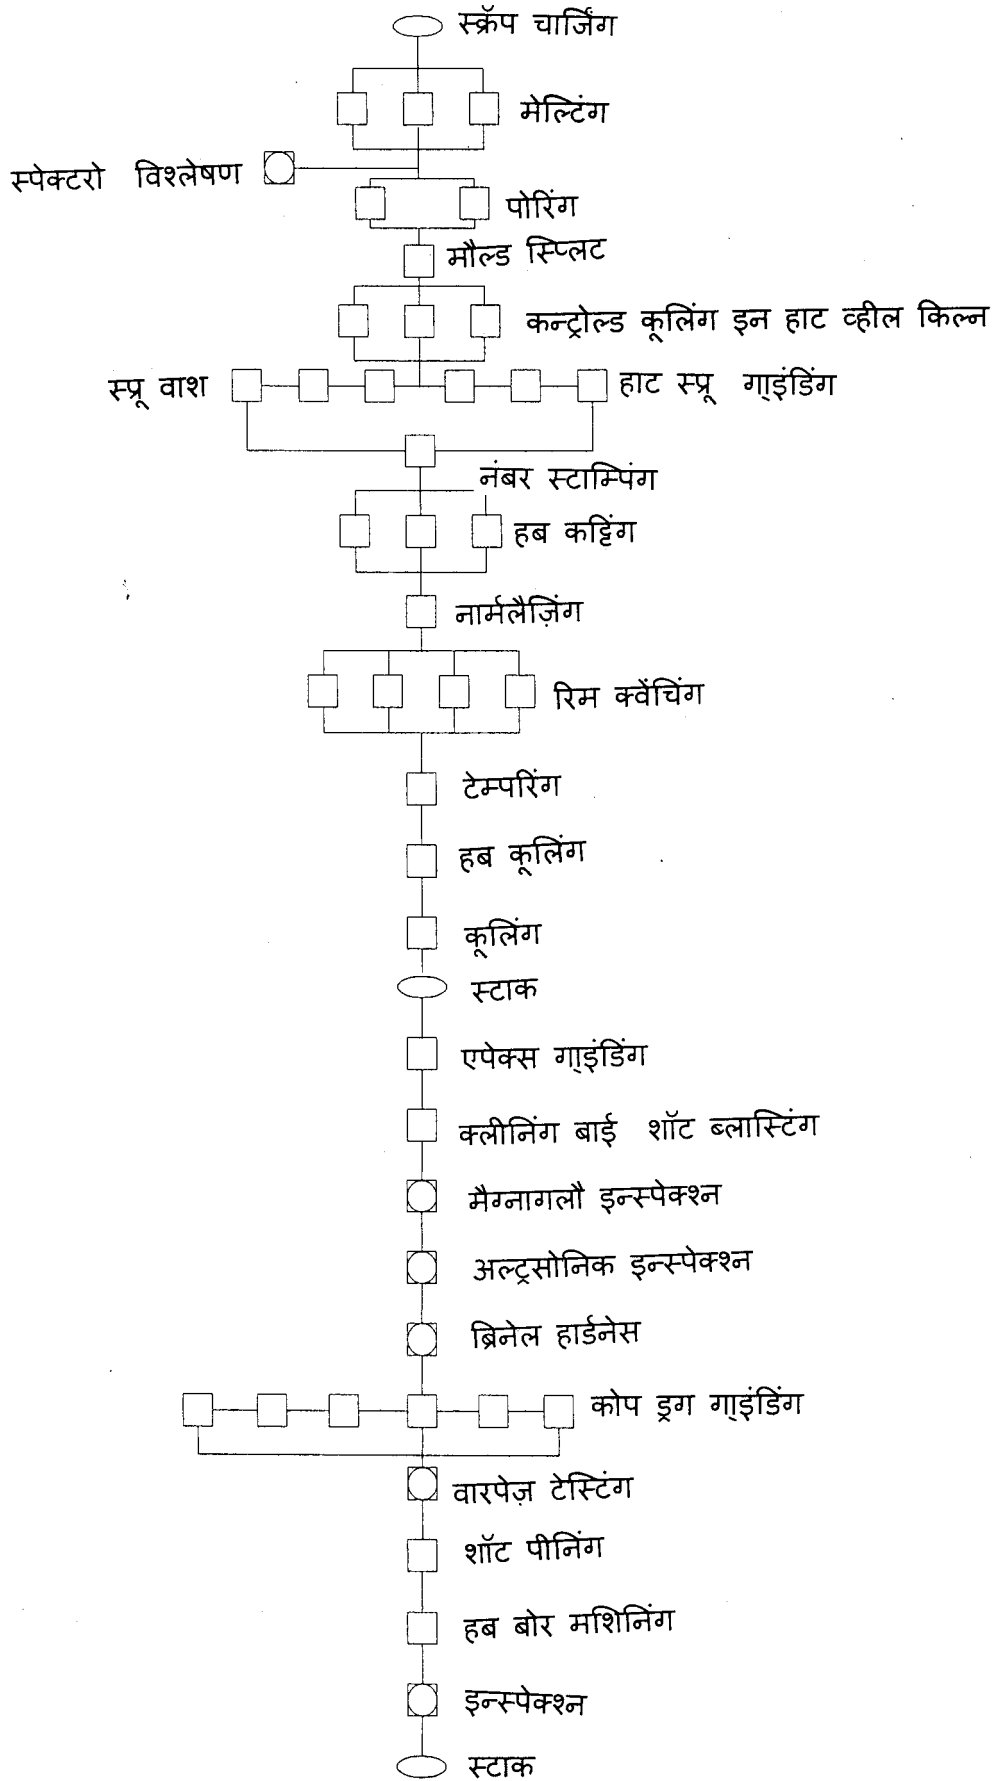 स्क्रॅप चार्जिंग
मेल्टिंग
स्पेक्टरो विश्लेषण
पोरिंग
मौल्ड स्प्लिट
कन्ट्रोल्ड कूलिंग इन हाट व्हील किल्न
स्प्रू वाश
हाट स्प्रू गा्इंडिंग
नंबर स्टाम्पिंग
हब कट्टिंग
नार्मलैज़िंग
रिम क्वेंचिंग
टेम्परिंग
हब कूलिंग
कूलिंग
स्टाक
एपेक्स गा्इंडिंग
क्लीनिंग बाई शॉट ब्लास्टिंग
मैग्नागलौ इन्स्पेक्श्न
अल्ट्रसोनिक इन्स्पेक्श्न
ब्रिनेल हार्डनेस
कोप ड्रग गा्इंडिंग
वारपेज़ टेस्टिंग
शॉट पीनिंग
हब बोर मशिनिंग
इन्स्पेक्श्न
स्टाक